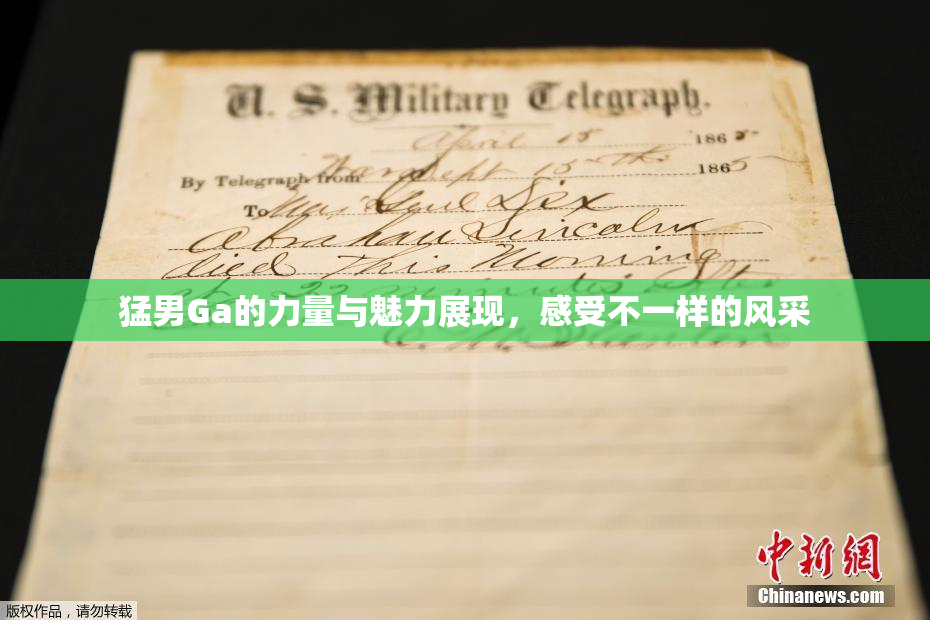 U. S. Military Telegraph.
April 15 1865
By Telegraph from War Dept 15th 1865
To Maj Genl Dix
Abraham Lincoln
died This Morning
at 22 minutes after
猛男Ga的力量与魅力展现，感受不一样的风采
E. M. Stanton
中新网
Chinanews.com
版权作品，请勿转载